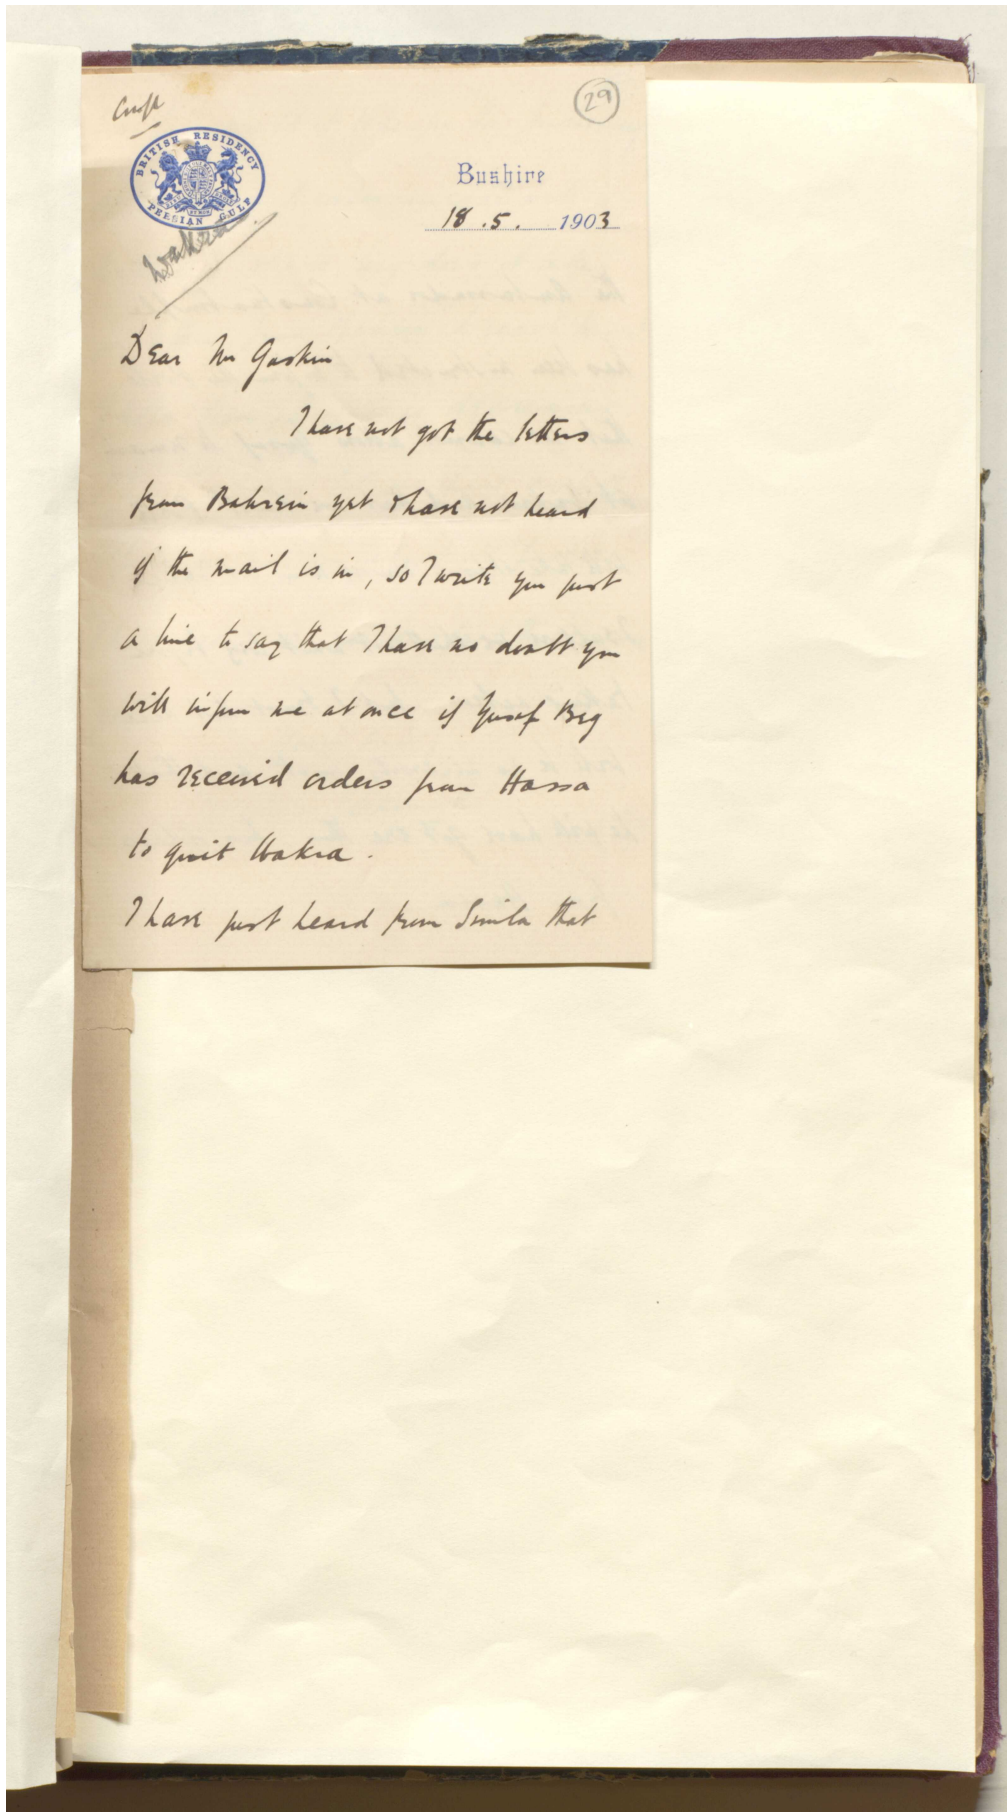 Conf
29
BRITISH RESIDENCY
PERSIAN GULF
Wakra
Bushire
18.5. 1903
Dear Mr Gaskin
I have not got the letters
from Bahrein yet & have not heard
if the mail is in, so I write you just
a line to say that I have no doubt you
will inform me at once if Yusuf Beg
has received orders from Hassa
to quit Wakra.
I have just heard from Simla that